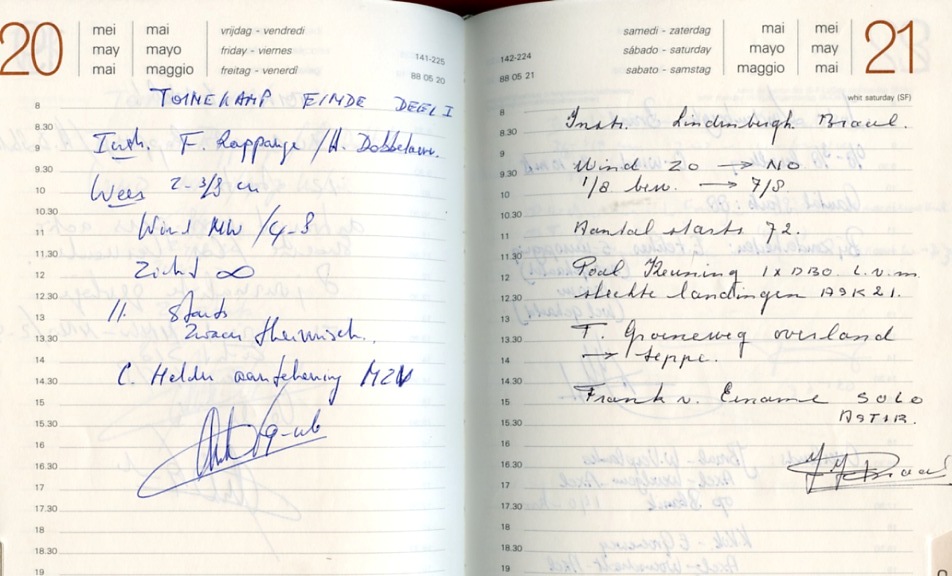 20
mei mai
may mayo
mai maggio
vrijdag - vendredi
friday - viernes
freitag - venerdì
141-225
88 05 20
TOINEKAMP EINDE DEEL I
8
8.30
9
9.30
10
10.30
11
11.30
12
12.30
13
13.30
14
14.30
15
15.30
16
16.30
17
17.30
18
18.30
19
Instr. F. Rappange / H.
2-3/8 cu
Wind NW / 4-8
Zicht ∞
11. starts
zwaar thermisch.
C. Helder aantekening
142-224
88 05 21
samedi - zaterdag
sábado - saturday
sabato - samstag
mai mei
mayo may
maggio mai
21
whit saturday (SF)
8
8.30
9
9.30
10
10.30
11
11.30
12
12.30
13
13.30
14
14.30
15
15.30
16
16.30
17
17.30
18
18.30
19
Instr. Lindenbergh. Braal.
Wind ZO → NO
1/8 bew. → 7/8
Aantal starts 72.
Poal Keuning 1x DBO i.v.m.
slechte landingen ASK21.
T. Groeneweg overland
→ teppe.
Frank v. SOLO
ASTIR.